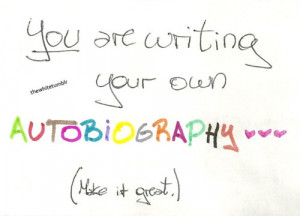 You are writing
thewhitetumblr
your own
AUTOBIOGRAPHY ♥♥♥
(Make it great.)